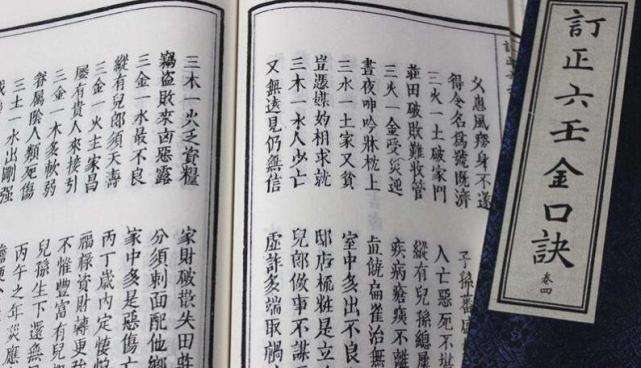 父患風癆身不遂
得令名爲號既濟
三火一土破家門
莊田破敗難收管
三火一金受災迍
晝夜呻吟牀枕上
三水一土家又貧
豈憑媒妁相求就
三木一水人少亡
又無遠見仍無信
子孫
人亡惡死不堪
縱有兒孫總
疾病瘡痍不離
直饒扁雀治無
室中多出不良
邸店梳粧是立
兒郎做事不謀
虛許多端取禍
三木一火乏資糧
竊盜敗來凶惡露
三金一水最不良
縱有兒郎須夭壽
三金一火主家昌
屢有貴人來接引
三金一木多軟弱
眷屬陰人頻死傷
三土一水出剛强
家財破散失田
分須刺面配他鄉
家中多是惡傷亡
丙丁歲內定悽
福祿資財轉更
不惟豐富有兒
兒孫生下還無
丙午之年災應
訂正六壬金口訣
卷四